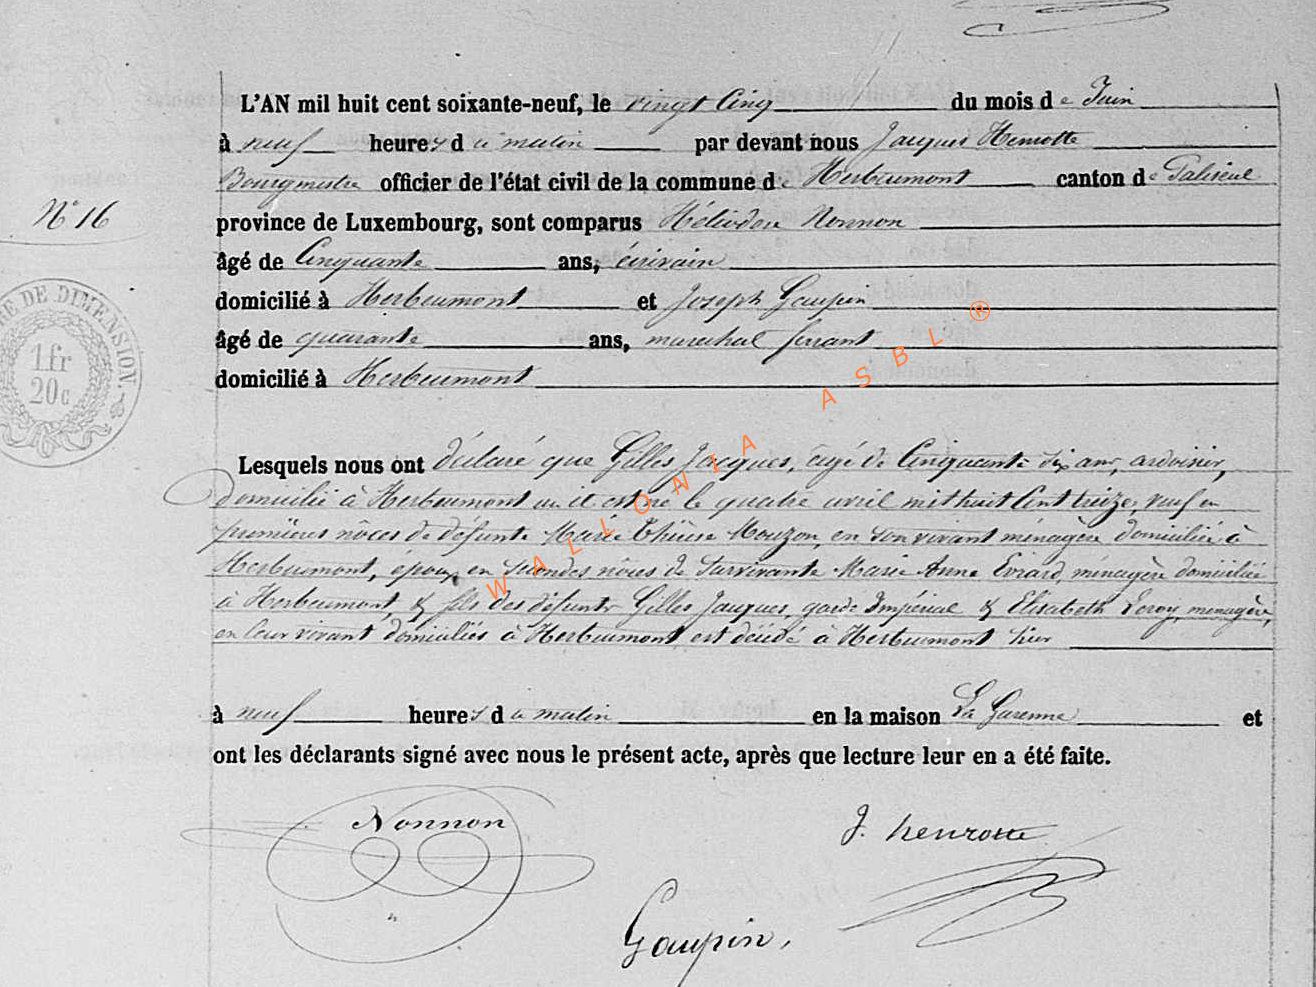 L'AN mil huit cent soixante-neuf, le vingt Cinq du mois de Juin
à neuf heures du matin par devant nous Jacques Henrotte
Bourgmestre officier de l'état civil de la commune de Herbeumont canton de Paliseul
N° 16
province de Luxembourg, sont comparus Héliodore Nonnon
âgé de Cinquante ans, écrivain
domicilié à Herbeumont et Joseph Gaupin
âgé de quarante ans, marechal ferrant
domicilié à Herbeumont
RE DE DIMENSION.
1fr
20c
Lesquels nous ont déclaré que Gilles Jacques, agé de Cinquante six ans, ardoisier,
domicilié à Herbeumont où il est né le quatre avril mil huit Cent treize, veuf en
premières nôces de défunte Marie Thérèse Mouzon, en son vivant menagère domiciliée à
Herbeumont, époux en secondes nôces de survivante Marie Anne Evrard, ménagère domiciliée
à Herbeumont, & fils des défunts Gilles Jacques, garde Impérial & Elisabeth Leroy, menagère,
en leur vivant domiciliés à Herbeumont est décédé à Herbeumont hier
à neuf heures du matin en la maison La Garenne et
ont les déclarants signé avec nous le présent acte, après que lecture leur en a été faite.
Nonnon J. henrotte
Gaupin,
WALLONIA ASBL ®